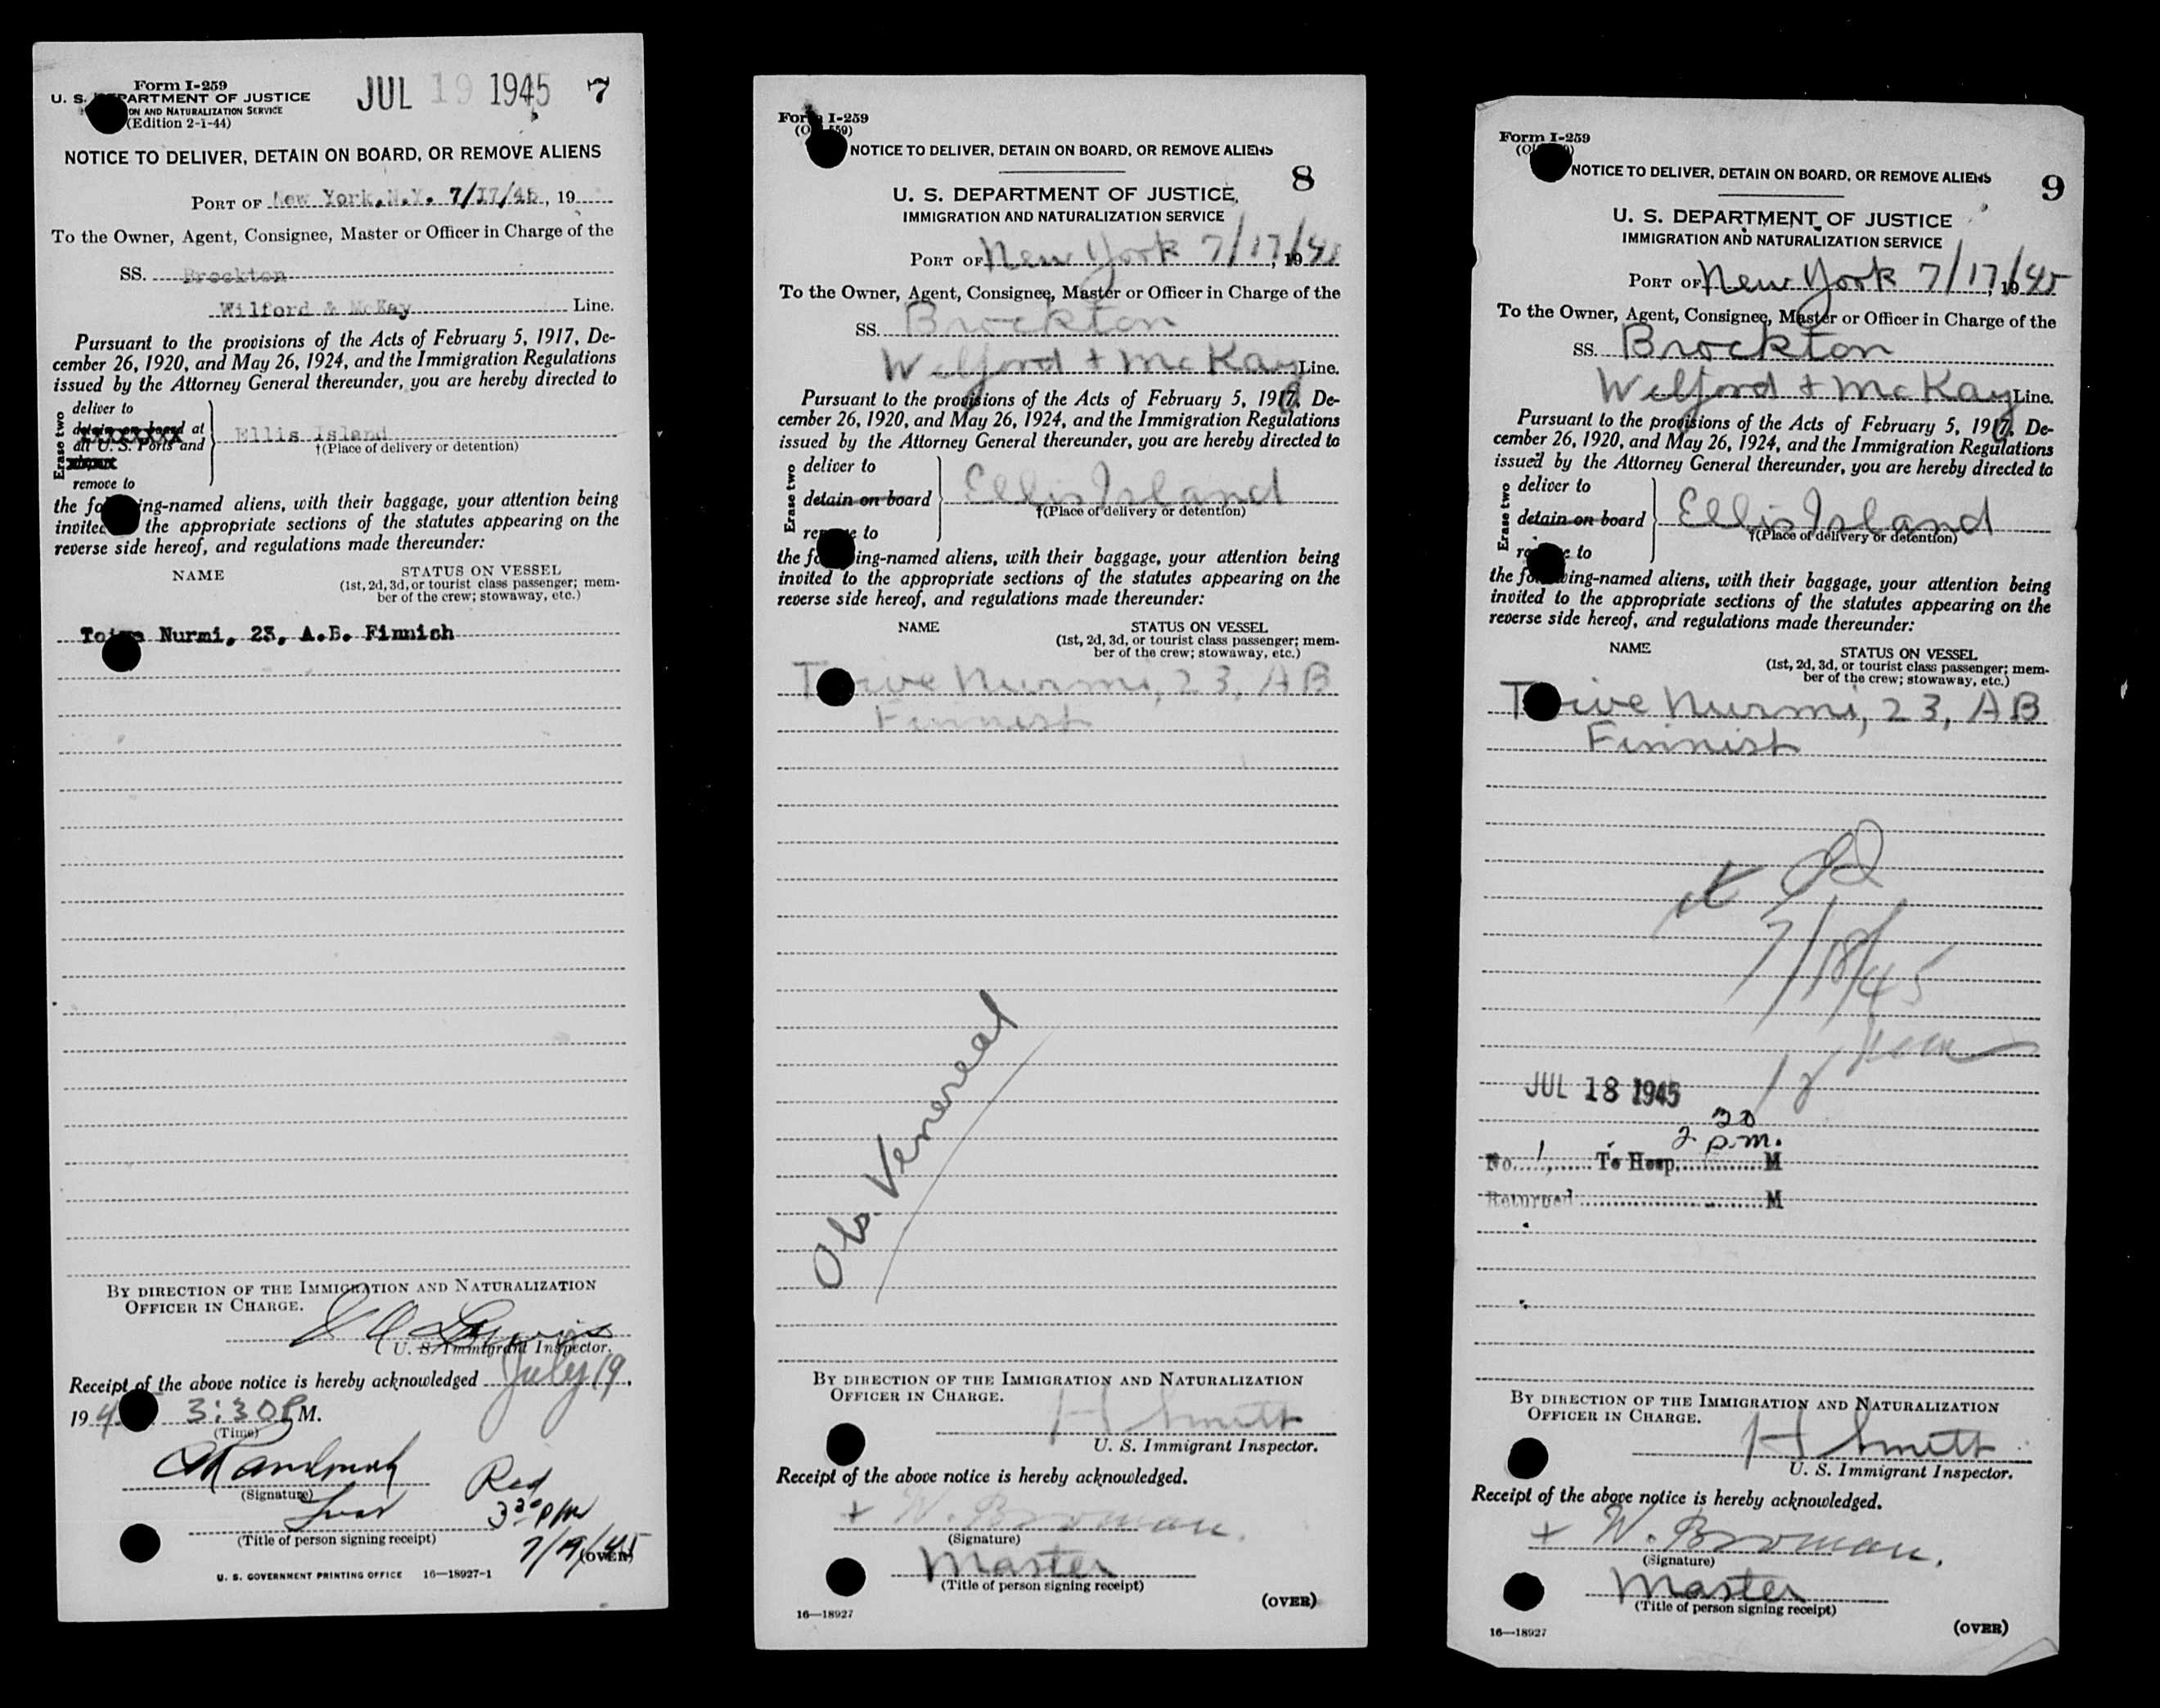 Form I-259
U. S. DEPARTMENT OF JUSTICE
ON AND NATURALIZATION SERVICE
(Edition 2-1-44)
JUL 19 1945 7
NOTICE TO DELIVER, DETAIN ON BOARD, OR REMOVE ALIENS
PORT OF New York, N.Y. 7/17/45, 19
To the Owner, Agent, Consignee, Master or Officer in Charge of the
SS. Brockton
Wilford & McKay Line.
Pursuant to the provisions of the Acts of February 5, 1917, De-
cember 26, 1920, and May 26, 1924, and the Immigration Regulations
issued by the Attorney General thereunder, you are hereby directed to
Erase two
deliver to
detain on board at
all U. S. Ports and
remove to
Ellis Island
†(Place of delivery or detention)
the following-named aliens, with their baggage, your attention being
invited the appropriate sections of the statutes appearing on the
reverse side hereof, and regulations made thereunder:
NAME STATUS ON VESSEL
(1st, 2d, 3d, or tourist class passenger; mem-
ber of the crew; stowaway, etc.)
Toive Nurmi, 23, A.B. Finnish
BY DIRECTION OF THE IMMIGRATION AND NATURALIZATION
OFFICER IN CHARGE.
U. S. Immigrant Inspector.
Receipt of the above notice is hereby acknowledged July 19,
194 3:30 P M.
(Time)
(Signature)
(Title of person signing receipt)
Rec'd
3 30 p/m
7/19/45
(OVER)
U. S. GOVERNMENT PRINTING OFFICE 16—18927-1
Form I-259
NOTICE TO DELIVER, DETAIN ON BOARD, OR REMOVE ALIENS
8
U. S. DEPARTMENT OF JUSTICE
IMMIGRATION AND NATURALIZATION SERVICE
PORT OF New York 7/17/, 1945
To the Owner, Agent, Consignee, Master or Officer in Charge of the
SS. Brockton
Wilford + McKay Line.
Pursuant to the provisions of the Acts of February 5, 1917, De-
cember 26, 1920, and May 26, 1924, and the Immigration Regulations
issued by the Attorney General thereunder, you are hereby directed to
Erase two
deliver to
detain on board
remove to
Ellis Island
†(Place of delivery or detention)
the following-named aliens, with their baggage, your attention being
invited to the appropriate sections of the statutes appearing on the
reverse side hereof, and regulations made thereunder:
NAME STATUS ON VESSEL
(1st, 2d, 3d, or tourist class passenger; mem-
ber of the crew; stowaway, etc.)
Toive Nurmi, 23, AB
Finnish
Obs. Venereal
BY DIRECTION OF THE IMMIGRATION AND NATURALIZATION
OFFICER IN CHARGE.
H Smith
U. S. Immigrant Inspector.
Receipt of the above notice is hereby acknowledged.
+ W. Broman.
(Signature)
Master
(Title of person signing receipt)
16—18927
(OVER)
Form I-259
NOTICE TO DELIVER, DETAIN ON BOARD, OR REMOVE ALIENS
9
U. S. DEPARTMENT OF JUSTICE
IMMIGRATION AND NATURALIZATION SERVICE
PORT OF New York 7/17/, 1945
To the Owner, Agent, Consignee, Master or Officer in Charge of the
SS. Brockton
Wilford + McKay Line.
Pursuant to the provisions of the Acts of February 5, 1917, De-
cember 26, 1920, and May 26, 1924, and the Immigration Regulations
issued by the Attorney General thereunder, you are hereby directed to
Erase two
deliver to
detain on board
remove to
Ellis Island
†(Place of delivery or detention)
the following-named aliens, with their baggage, your attention being
invited to the appropriate sections of the statutes appearing on the
reverse side hereof, and regulations made thereunder:
NAME STATUS ON VESSEL
(1st, 2d, 3d, or tourist class passenger; mem-
ber of the crew; stowaway, etc.)
Toive Nurmi, 23, AB
Finnish
7/18/45
JUL 18 1945
No. 1, To Hosp. 2 30 p.m. M
Returned M
BY DIRECTION OF THE IMMIGRATION AND NATURALIZATION
OFFICER IN CHARGE.
H Smith
U. S. Immigrant Inspector.
Receipt of the above notice is hereby acknowledged.
+ W. Broman.
(Signature)
Master
(Title of person signing receipt)
16—18927
(OVER)